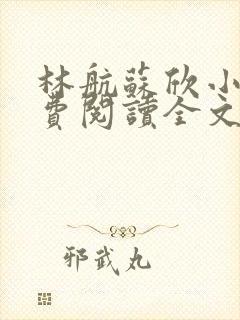 林航蘇欣小
費閱讀全文
邪武丸